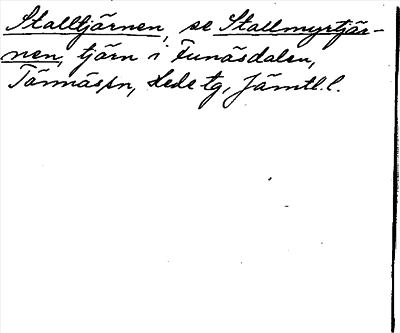 Stalltjärnen, se Stallmyrtjär-
nen, tjärn i Funäsdalen,
Tännässn, Hede tg, Jämtl. l.